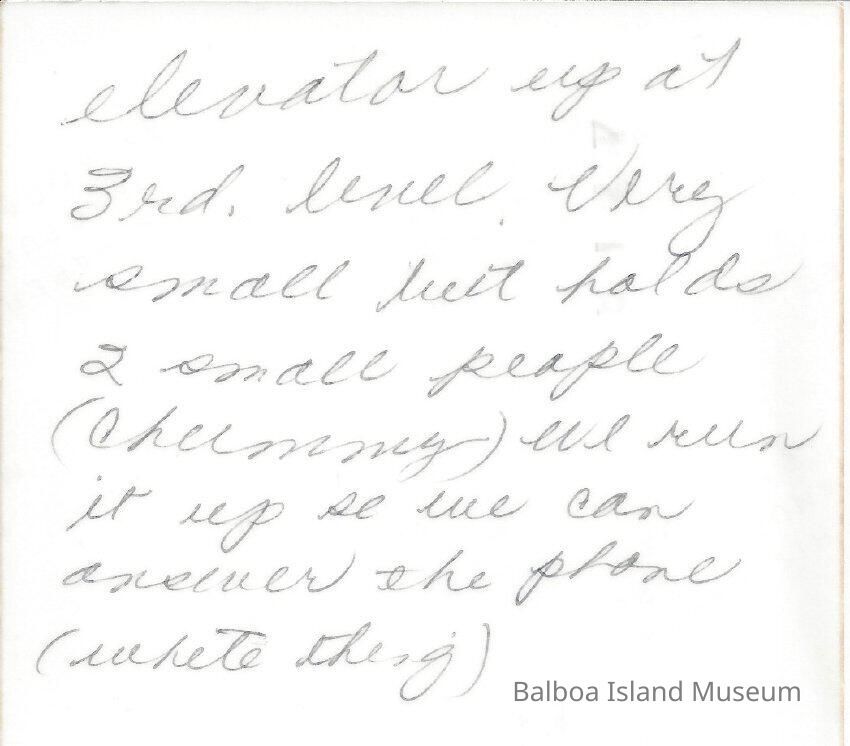 elevator up at
3rd. level. Very
small but holds
2 small people
(chummy) we run
it up so we can
answer the phone
(white thing)
Balboa Island Museum